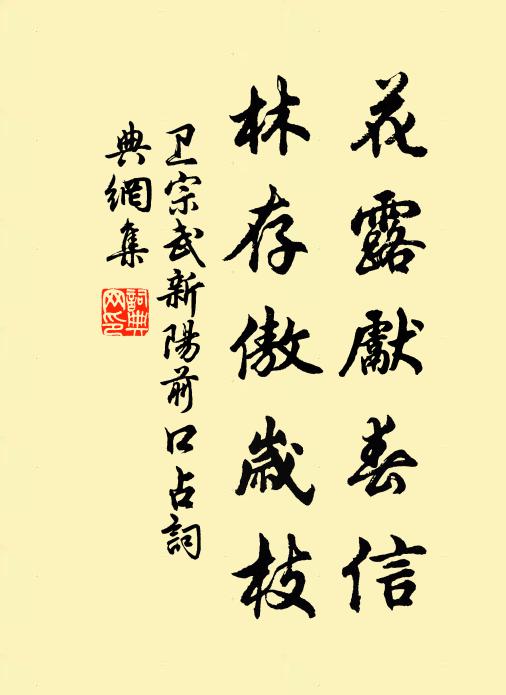 花露獻春信
林存傲歲枝
卫宗武新陽前口占詞
典網集
詞典網印